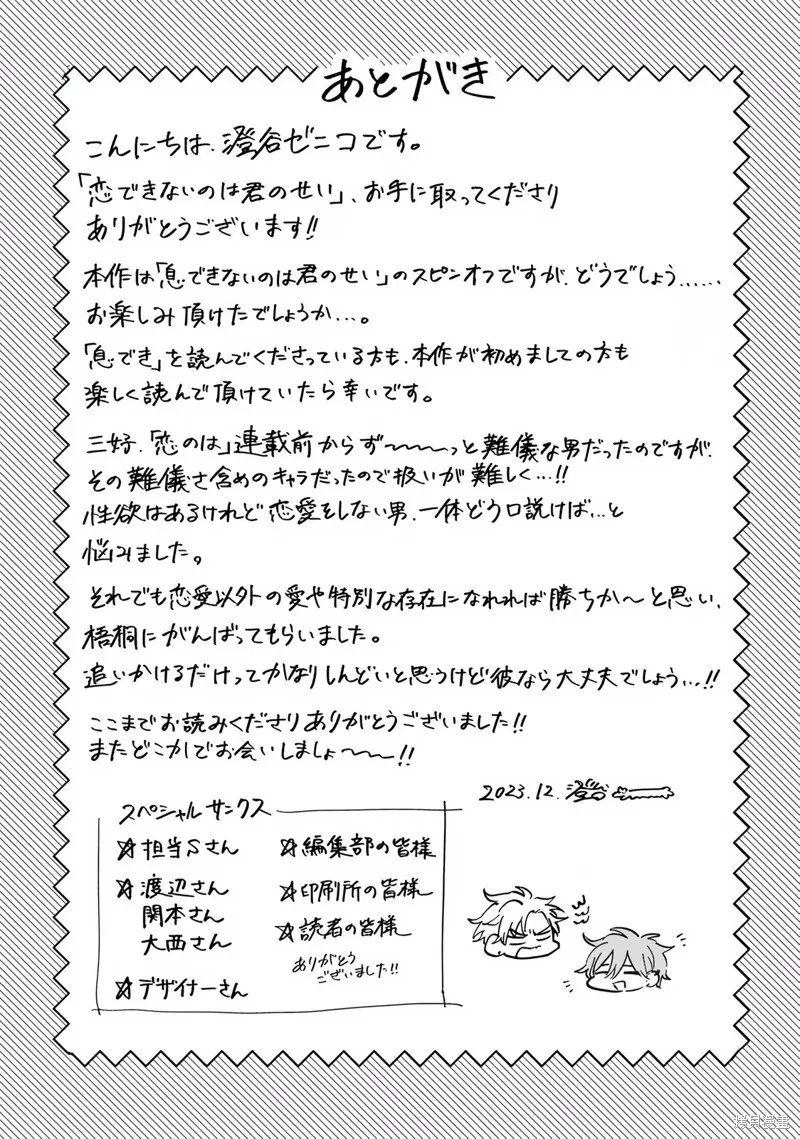 あとがき
こんにちは、澄谷ゼニコです。
「恋できないのは君のせい」、お手に取ってくださり
ありがとうございます!!
本作は「息できないのは君のせい」のスピンオフですが、どうでしょう……
お楽しみ頂けたでしょうか…。
「息でき」を読んでくださっている方も、本作が初めましての方も
楽しく読んで頂けていたら幸いです。
三好、「恋のは」連載前からず〜〜〜っと難儀な男だったのですが、
その難儀さ含めのキャラだったので扱いが難しく…!!
性欲はあるけれど恋愛をしない男、一体どう口説けば…と
悩みました。
それでも恋愛以外の愛や特別な存在になれれば勝ちか〜と思い、
梧桐にがんばってもらいました。
追いかけるだけってかなりしんどいと思うけど彼なら大丈夫でしょう…!!
ここまでお読みくださりありがとうございました!!
またどこかでお会いしましょ〜〜〜!!
2023.12.澄谷
スペシャルサンクス
☆担当Sさん
☆渡辺さん
関本さん
大西さん
☆デザイナーさん
☆編集部の皆様
☆印刷所の皆様
☆読者の皆様
ありがとう
ございました!!
拷貝漫畫